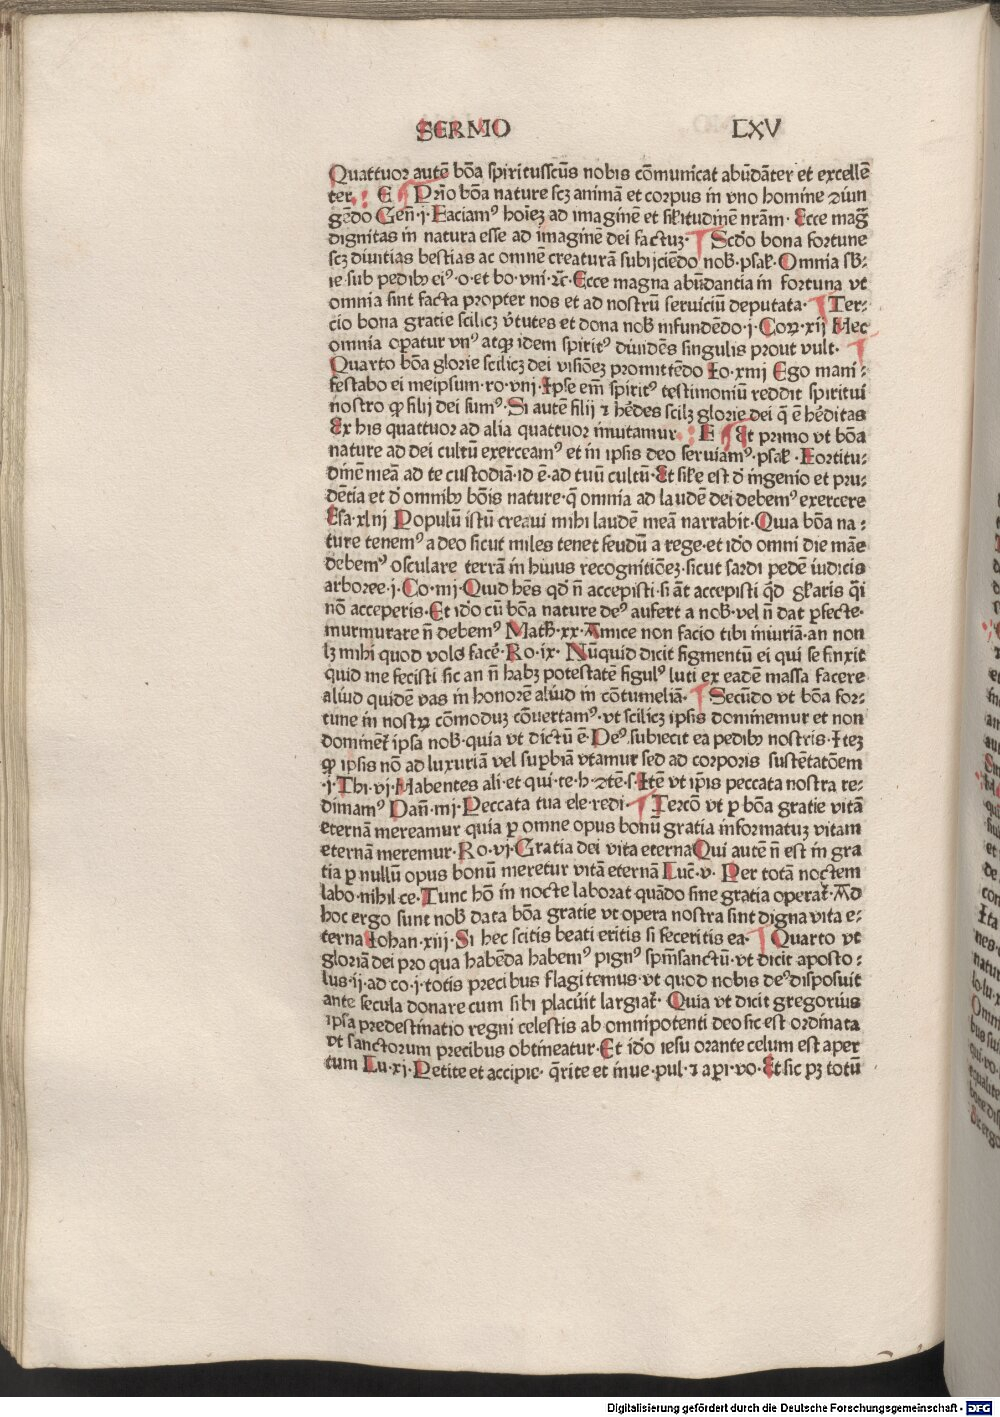 SERMO LXV
Quattuor autē bōa spirituſſcūs nobis cōmunicat abūdāter et excellē
ter. E Prīo bōa nature ſcꝫ animā et corpus in vno homine ↄiun
gēdo Geñ·j·Faciamꝰ hoīeꝫ ad imaginē et ſilitudinē nrām· Ecce mag̃
dignitas in natura esse ad imaginē dei factuꝫ· Scdo bona fortune
ſcꝫ diuitias bestias ac omnē creaturā subijciēdo nob̵·pſal̵·Omnia ſb̵:
ie·sub pedibꝰ eiꝰ·o·et bo·vni·ꝛc̄·Ecce magna abūdantia in fortuna vt
omnia ſint facta propter nos et ad nostrū seruiciū deputata· Ter:
cio bona gratie ſcilicꝫ v̄tutes et dona nob̵ infundēdo·j·Coꝝ·xij Hec
omnia oꝑatur vnꝰ atqꝫ idem ſpiritꝰ diuidēs ſingulis prout vult·
Quarto bōa glorie ſcilicꝫ dei viſiōeꝫ promittēdo Io·xiiij Ego mani:
festabo ei meipsum·ro·viij·Ipse em̄ ſpiritꝰ testimoniū reddit ſpiritui
nostro ꝙ filij dei sumꝰ·Si autē filij ⁊ hēdes ſcilꝫ glorie dei q̄ ē hēditas
Ex his quattuor ad alia quattuor inuitamur· F Et primo vt bōa
nature ad dei cultū exerceamꝰ et in ipsis deo seruiamꝰ·psal̵·Fortitu:
dinē meā ad te custodiā·id ē·ad tuū cultū·Et ſil̵e est d̄ ingenio et pru:
dētia et d̄ omnibꝰ bōis nature·q̄ omnia ad laudē dei debemꝰ exercere
Esa·xliij Populū istū creaui mihi laudē meā narrabit·Quia bōa na:
ture tenemꝰ a deo sicut miles tenet feudū a rege·et id̄o omni die māe
debemꝰ osculare terrā in huius recognitiōeꝫ·sicut sardi pedē iudicis
arboree·j·Co·iiij·Quid hēs qd̄ n̄ accepisti·si āt accepisti q̇d gl̵aris q̄i
nō acceperis·Et id̄o cū bōa nature deꝰ aufert a nob̵·vel n̄ dat ꝑfecte·
murmurare n̄ debemꝰ Math̵·xx·Amice non facio tibi iniuriā·an non
lꝫ mihi quod volo facē·Ro·ix· Nūquid dicit figmentū ei qui se finxit
quid me fecisti sic an n̄ habꝫ potestatē figulꝰ luti ex eadē massa facere
aliud quidē vas in honorē aliud in cōtumeliā· Secūdo vt bōa for:
tune in nostꝝ cōmoduꝫ cōuertamꝰ·vt ſcilicꝫ ipsis dominemur et non
dominēt̵ ipsa nob̵·quia vt dictū ē·Deꝰ subiecit ea pedibꝰ nostris·Iteꝫ
ꝙ ipsis nō ad luxuriā vel suꝑbiā vtamur sed ad corporis sustētatōem
·j·Thi·vj·Habentes ali·et qui·te·h·ↄtē·ſ·Itē vt ip̄is peccata nostra re:
dimamꝰ Dañ·iiij·Peccata tua ele·redi· Tercō vt ꝑ bōa gratie vitā
eternā mereamur quia ꝑ omne opus bonū gratia informatuꝫ vitam
eternā meremur·Ro·vj·Gratia dei vita eterna Qui autē n̄ est in gra
tia ꝑ nullū opus bonū meretur vitā eternā Luc̄·v· Per totā noctem
labo·nihil ce·Tunc hō in nocte laborat quādo sine gratia operat̵·Ad
hoc ergo sunt nob̵ data bōa gratie vt opera nostra sint digna vita e:
terna Iohan·xiij·Si hec scitis beati eritis si feceritis ea· Quarto vt
gloriā dei pro qua habēda habemꝰ pignꝰ spm̄sanctū·vt dicit aposto:
lus·ij·ad co·j·totis precibus flagitemus·vt quod nobis deꝰ disposuit
ante secula donare cum sibi placuit largiat̵· Quia vt dicit gregorius
ipsa predestinatio regni celestis ab omnipotenti deo sic est ordinata
vt sanctorum precibus obtineatur·Et id̄o iesu orante celum est aper
tum Lu·xj·Petite et accipie· q̄rite et inue·pul·⁊ aꝑi·vo·Et sic pꝫ totū